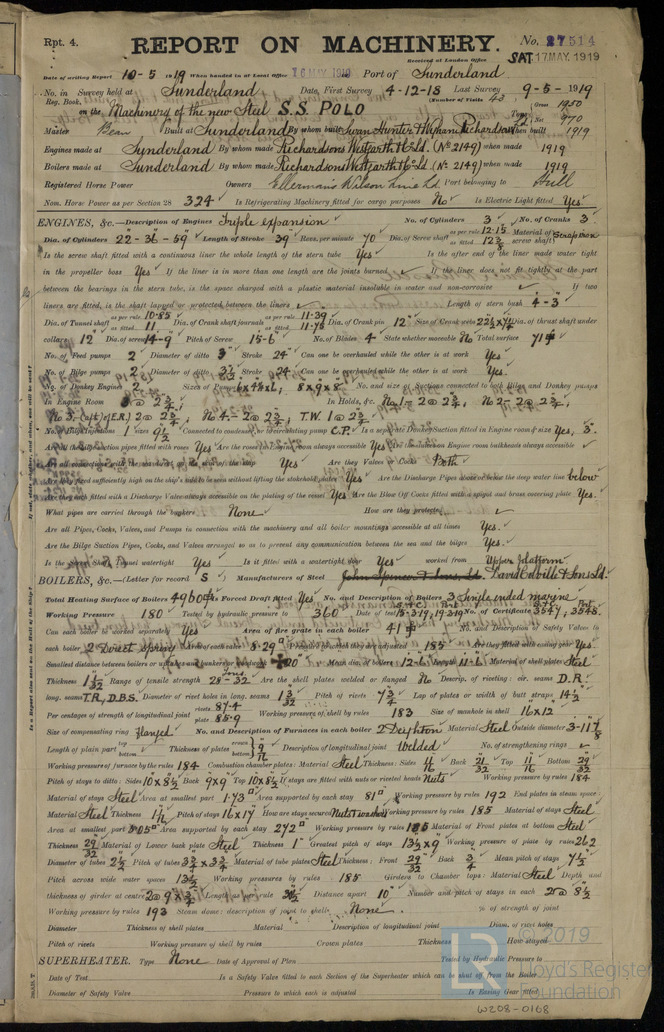 Rpt. 4.
REPORT ON MACHINERY.
No. 27514
Received at London Office
SAT. 17 MAY. 1919
Date of writing Report 10-5 1919 When handed in at Local Office 16 MAY 1919 Port of Sunderland
No. in Survey held at Sunderland Date, First Survey 4-12-18 Last Survey 9-5-1919
Reg. Book. (Number of Visits 43)
on the Machinery of the new Steel S.S. POLO
Gross 1950
Net 770
Master Bean Built at Sunderland By whom built Swan Hunter & Wigham Richardson When built 1919
Engines made at Sunderland By whom made Richardsons Westgarth & Co Ld. (No 2149) when made 1919
Boilers made at Sunderland By whom made Richardsons Westgarth & Co Ld. (No 2149) when made 1919
Registered Horse Power Owners Ellerman's Wilson Line Ld. Port belonging to Hull
Nom. Horse Power as per Section 28 324 Is Refrigerating Machinery fitted for cargo purposes No Is Electric Light fitted Yes
ENGINES, &c.—Description of Engines Triple expansion No. of Cylinders 3 No. of Cranks 3
Dia. of Cylinders 22"-36"-59" Length of Stroke 39" Revs. per minute 70 Dia. of Screw shaft as per rule 12.15 Material of screw shaft Scrap iron
as fitted 12 3/8
Is the screw shaft fitted with a continuous liner the whole length of the stern tube Yes Is the after end of the liner made water tight
in the propeller boss Yes If the liner is in more than one length are the joints burned If the liner does not fit tightly at the part
between the bearings in the stern tube, is the space charged with a plastic material insoluble in water and non-corrosive If two
liners are fitted, is the shaft lapped or protected between the liners Length of stern bush 4-3"
Dia. of Tunnel shaft as per rule 10.85 as fitted 11 Dia. of Crank shaft journals as per rule 11.39 as fitted 11 3/4 Dia. of Crank pin 12" Size of Crank webs Dia. of thrust shaft under
collars 12" Dia. of screw 14-9" Pitch of Screw 15-6" No. of Blades 4 State whether moveable No Total surface 71
No. of Feed pumps 2 Diameter of ditto 3" Stroke 24" Can one be overhauled while the other is at work Yes
No. of Bilge pumps 2 Diameter of ditto 3 1/2 Stroke 24" Can one be overhauled while the other is at work Yes
No. of Donkey Engines 2 Sizes of Pumps 6x4 1/2x6; 8x9x8 No. and size of Suctions connected to both Bilge and Donkey pumps
In Engine Room 3 @ 2 3/4 In Holds, &c. No 1 = 2 @ 2 3/4; No 2 = 2 @ 2 3/4;
No 3 (aft of E.R.) 2 @ 2 3/4; No 4 = 2 @ 2 3/4; T.W. 1 @ 2 3/4
No. of Bilge Injections 1 sizes 9 1/2 Connected to condenser, or to circulating pump C.P. Is a separate Donkey Suction fitted in Engine room & size Yes, 3"
Are all the bilge suction pipes fitted with roses Yes Are the roses in Engine room always accessible Yes Are the sluices on Engine room bulkheads always accessible
Are all connections with the sea direct on the skin of the ship Yes Are they Valves or Cocks Both
Are they fixed sufficiently high on the ship's side to be seen without lifting the stokehold plates Yes Are the Discharge Pipes above or below the deep water line below
Are they each fitted with a Discharge Valve always accessible on the plating of the vessel Yes Are the Blow Off Cocks fitted with a spigot and brass covering plate Yes.
What pipes are carried through the bunkers None How are they protected
Are all Pipes, Cocks, Valves, and Pumps in connection with the machinery and all boiler mountings accessible at all times Yes.
Are the Bilge Suction Pipes, Cocks, and Valves arranged so as to prevent any communication between the sea and the bilges Yes.
Is the Screw Shaft Tunnel watertight Yes Is it fitted with a watertight door Yes worked from Upper platform
BOILERS, &c.—(Letter for record S) Manufacturers of Steel John Spencer & Sons, Ld. David Colville & Sons Ld.
Total Heating Surface of Boilers 4960 Is Forced Draft fitted Yes No. and Description of Boilers 3 Single ended marine
Working Pressure 180 Tested by hydraulic pressure to 360 Date of test 15-3-19, 19-3-19 No. of Certificate 3547, 3548.
Can each boiler be worked separately Yes Area of fire grate in each boiler 41 No. and Description of Safety Valves to
each boiler 2 Direct spring Area of each valve 8.29 Pressure to which they are adjusted 185 Are they fitted with easing gear Yes
Smallest distance between boilers or uptakes and bunkers or woodwork 20" Mean dia. of boilers 12-6 Length 11-6 Material of shell plates Steel
Thickness 1 1/32 Range of tensile strength 28-32 tons Are the shell plates welded or flanged No Descrip. of riveting: cir. seams D.R.
long. seams T.R., D.B.S. Diameter of rivet holes in long. seams 1 3/32 Pitch of rivets 7 3/4 Lap of plates or width of butt straps 14 1/2
Per centages of strength of longitudinal joint rivets 87.4 plate 85.9 Working pressure of shell by rules 183 Size of manhole in shell 16"x12"
Size of compensating ring flanged No. and Description of Furnaces in each boiler 2 Deighton Material Steel Outside diameter 3-11 7/8
Length of plain part top bottom Thickness of plates crown bottom 9/16 Description of longitudinal joint Welded No. of strengthening rings
Working pressure of furnace by the rules 184 Combustion chamber plates: Material Steel Thickness: Sides 11/16 Back 21/32 Top 11/16 Bottom 29/32
Pitch of stays to ditto: Sides 10x8 1/2 Back 9x9" Top 10x8 1/2 If stays are fitted with nuts or riveted heads Nuts Working pressure by rules 184
Material of stays Steel Area at smallest part 1.73 Area supported by each stay 81 Working pressure by rules 192 End plates in steam space:
Material Steel Thickness 1 1/16 Pitch of stays 16x17 How are stays secured Nuts & washers Working pressure by rules 185 Material of stays Steel
Area at smallest part 5.05 Area supported by each stay 272 Working pressure by rules 185 Material of Front plates at bottom Steel
Thickness 29/32 Material of Lower back plate Steel Thickness 1" Greatest pitch of stays 13 1/2 x 9" Working pressure of plate by rules 262
Diameter of tubes 2 1/2 Pitch of tubes 3 3/4 x 3 3/4 Material of tube plates Steel Thickness: Front 29/32 Back 3/4 Mean pitch of stays 7 1/2
Pitch across wide water spaces 13 1/2 Working pressures by rules 185 Girders to Chamber tops: Material Steel Depth and
thickness of girder at centre 2 @ 9 x 3/4 Length as per rule Distance apart 10" Number and pitch of stays in each 2 @ 8 1/2
Working pressure by rules 193 Steam dome: description of joint to shell None. % of strength of joint
Diameter Thickness of shell plates Material Description of longitudinal joint Diam. of rivet holes
Pitch of rivets Working pressure of shell by rules Crown plates Thickness How stayed
SUPERHEATER. Type None Date of Approval of Plan Tested by Hydraulic Pressure to
Date of Test Is a Safety Valve fitted to each Section of the Superheater which can be shut off from the Boiler
Diameter of Safety Valve Pressure to which each is adjusted Is Easing Gear fitted
© 2019
LR
Lloyd's Register
Foundation
W208-0168